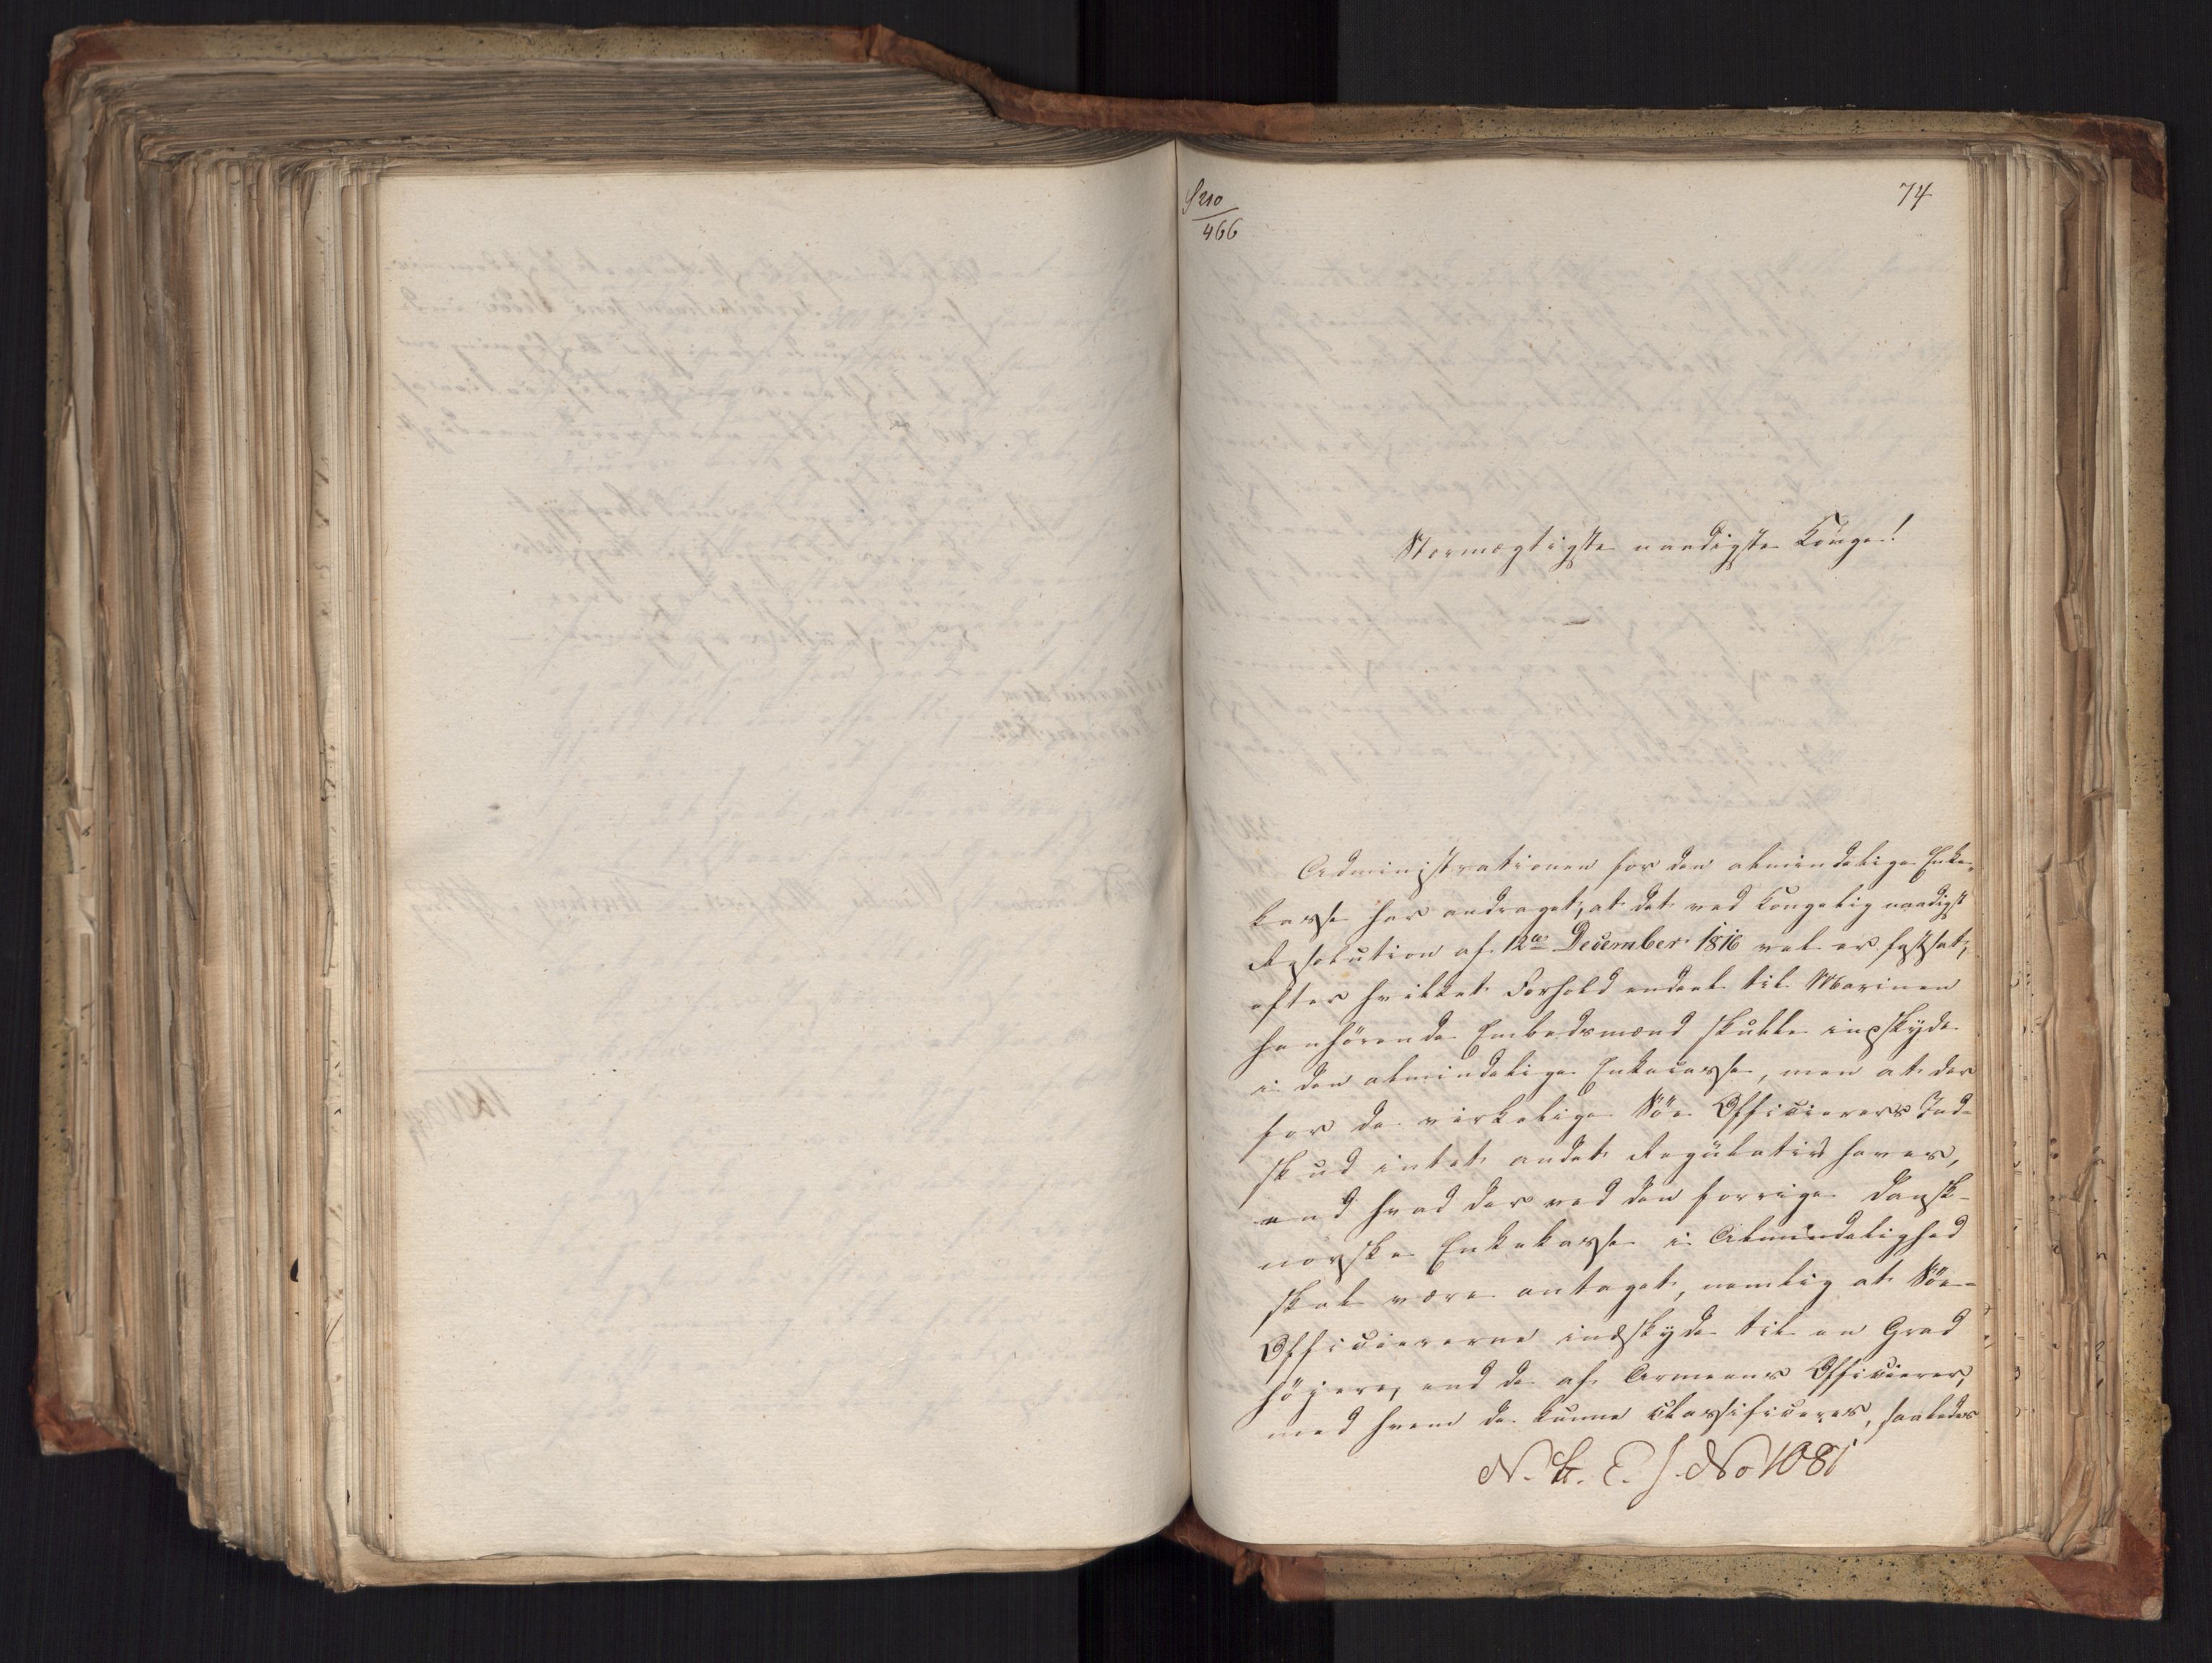 S 210
466
74
Stormægtigste naadigste Konge!
Administrationen for den almindelige Enke-
kasse har andraget, at det ved Kongelig naadigst
Resolution af 12te December 1816 vel er fastsat,
efter hvilket Forhold endeel til Marinen
henhörende Embedsmænd skulle indskyde
i den almindelige Enkecasse, men at der
for de virkelige Söe Officierers Ind-
skud intet andet Regülativ haves,
end hvad der ved den forrige dansk-
norske Enkekasse i Almindelighed
skal være antaget, nemlig at Söe-
Officiererne indskyde til en Grad
höjere, end de af Armeens Officierer,
med hvem de kunne classificeres, saaledes
No 1081